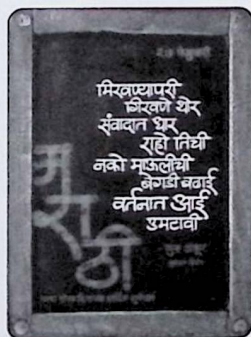 २७ फेब्रुवारी
मिरवण्यापरी
गिरवणे थोर
संवादात धार
राहो तिची
नको माऊलीची
बेगडी बढाई
वर्तनात आई
उमटावी
मराठी